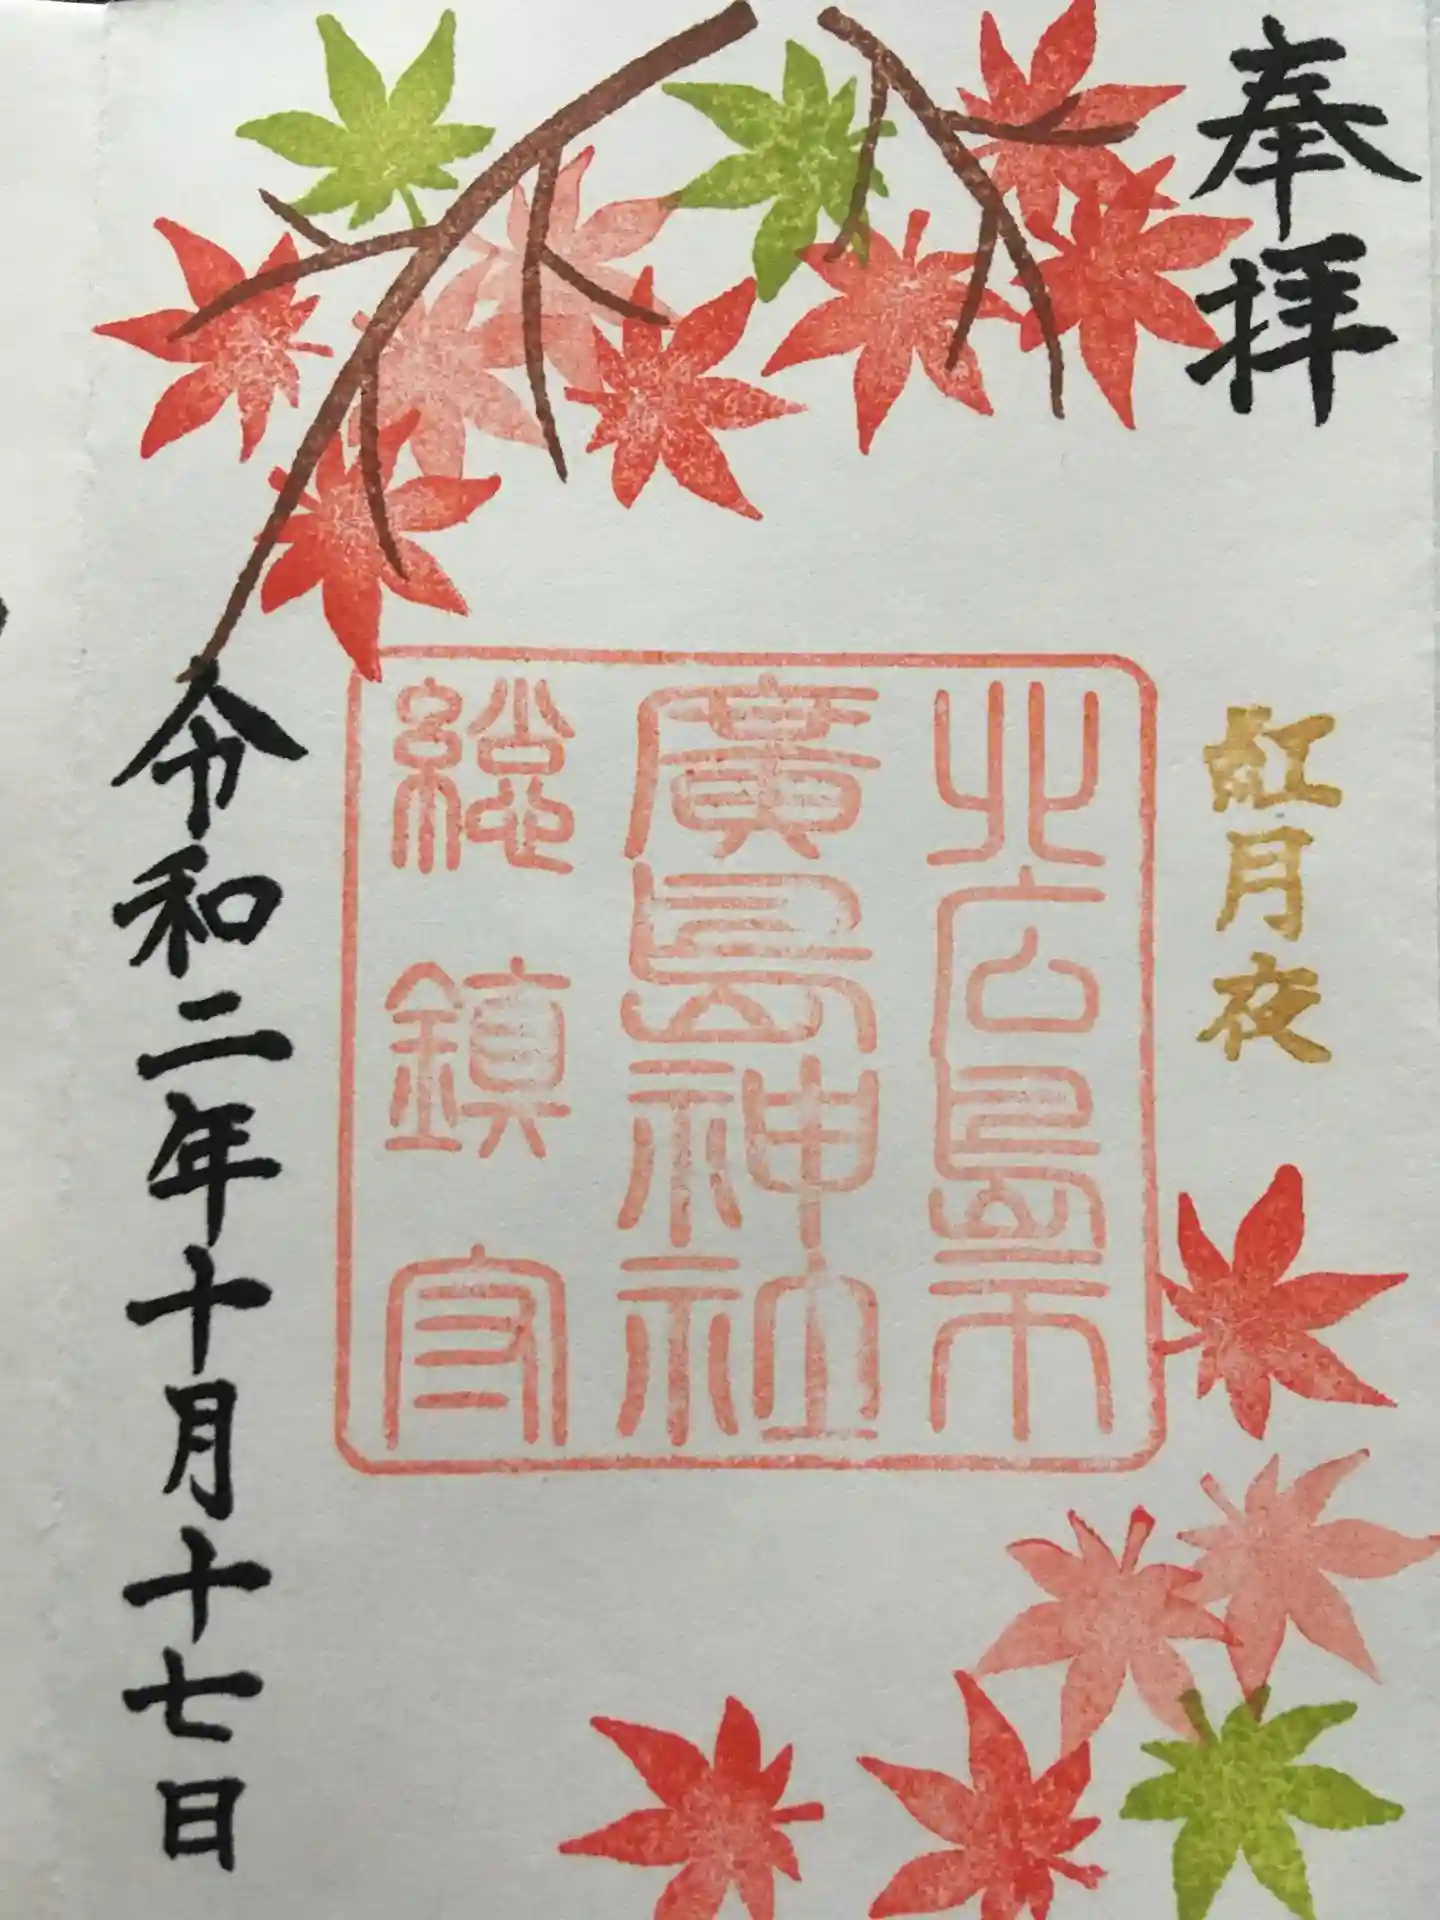 奉拝
紅月夜
北広島市
廣島神社
総鎮守
令和二年十月十七日